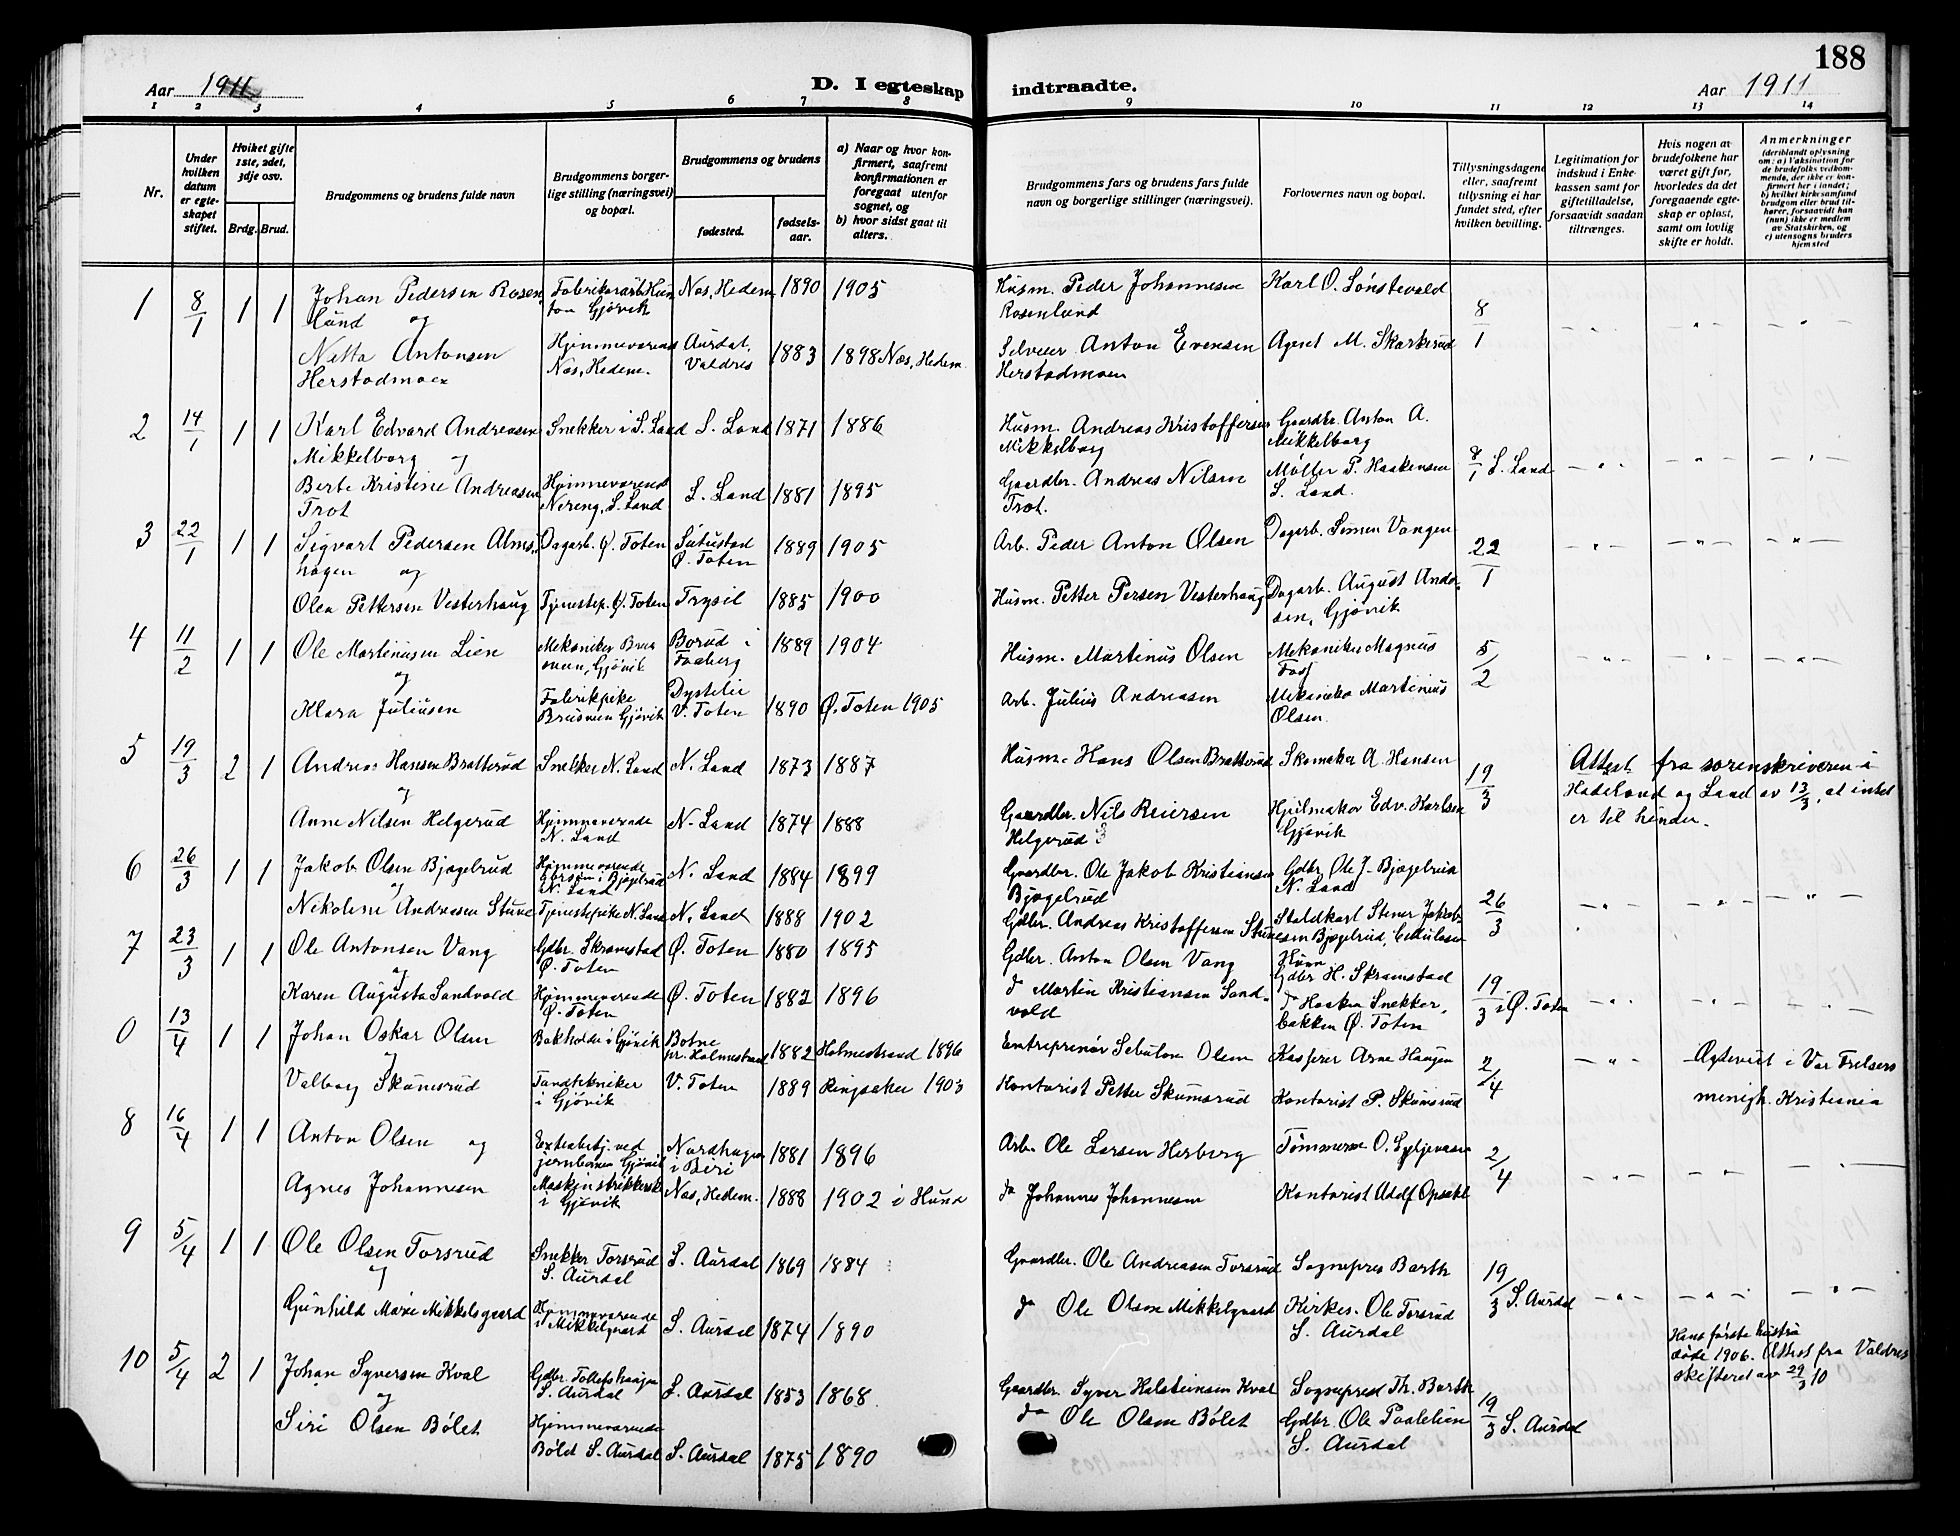 188
Aar 1911
D. I egteskap
indtraadte.
Aar 1911
1 2 3 4 5 6 7 8 9 10 11 12 13 14
Nr.
Under hvilken datum er egteskapet stiftet.
Hviket gifte 1ste, 2det, 3dje osv.
Brdg. Brud.
Brudgommens og brudens fulde navn
Brudgommens borgerlige stilling (næringsvei) og bopæl.
Brudgommens og brudens
fødested.
fødselsaar.
a) Naar og hvor konfirmert, saafremt konfirmationen er foregaat utenfor sognet, og
b) hvor sidst gaat til alters.
Brudgommens fars og brudens fars fulde navn og borgerlige stillinger (næringsvei).
Forlovernes navn og bopæl.
Tillysningsdagene eller, saafremt tillysning ei har fundet sted, efter hvilken bevilling.
Legitimation for indskud i Enkekassen samt for giftetilladelse, forsaavidt saadan tiltrænges.
Hvis nogen av brudefolkene har været gift før, hvorledes da det foregaaende egteskap er opløst, samt om lovlig skifte er holdt.
Anmerkninger
(deriblandt oplysning om: a) Vaksination for de brudefolks vedkommende, der ikke er konfirmert her i landet; b) hvilket kirkesamfund brudgom eller brud tilhører, forsaavidt han (hun) ikke er medlem av Statskirken, og c) utensogns bruders hjemsted
1 8/1 1 1 Johan Pedersen Rosenlund og Fabriksarb. Hunton Gjøvik Nas, Hedem. 1890 1905 Husm. Peder Johannesen Rosenlund Karl O. Lønstevold 8/1
Netta Antonsen Herstadmoen Hjemmeværend Nas, Hedem. Aurdal, Valdres 1883 1898 Nas, Hedem. Selveier Anton Evensen Herstadmoen Agent M. Skarkerud
2 14/1 1 1 Karl Edvard Andreasen Mikkelborg og Snekker i S. Land S. Land 1871 1886 Husm. Andreas Kristoffersen Mikkelborg Gaardbr. Anton A. Mikkelborg 8/1 S. Land
Berte Kristine Andreasen Trot Hjemmeværend Nereng, S. Land S. Land 1881 1895 Gaardbr. Andreas Nilsen Trot. Møller P. Haakensen S. Land.
3 22/1 1 1 Sigvart Pedersen Almshagen og Dagarb. Ø. Toten Ø. Toten 1889 1905 Arb. Peder Anton Olsen Dagarb. Simen Vangen 22/1
Olea Pettersen Vesterhaug Tjenestep. Ø. Toten Trysil 1885 1900 Husm. Petter Persen Vesterhaug Dagarb. August Andersen, Gjøvik
4 11/2 1 1 Ole Martinusen Lien og Mekaniker Gjøvik Borud i Faaberg 1889 1904 Husm. Martinus Olsen Mekaniker Magnus 5/2
Klara Juliusen Fabrikpike Gjøvik Dystelie V. Toten 1890 Ø. Toten 1905 Arb. Julius Andreasen Mekaniker Martinius Olsen.
5 19/3 2 1 Andreas Hansen Bratterud og Snekker N. Land N. Land 1873 1887 Husm. Hans Olsen Bratterud Skomaker A. Hansen 19/3 Attest fra sorenskriveren i Hadeland og Land av 13/3, at intet er til hinder.
Anne Nilsen Helgerud Hjemmeværende N. Land N. Land 1874 1888 Gaardbr. Nils Reiersen Helgerud Hjulmaker Edv. Karlsen Gjøvik
6 26/3 1 1 Jakob Olsen Bjøgelrud og Hjemmeværende N. Land N. Land 1884 1899 Gaardbr. Ole Jakob Kristiansen Bjøgelrud Gdbr. Ole J. Bjøgelrud N. Land 26/3
Nikoline Andreasen Stuve Tjenestepike N. Land N. Land 1888 1902 Gdbr. Andreas Kristoffersen Staldkarl Stener Jakobsen Bjøgelrud,
7 23/3 1 1 Ole Antonsen Vang og Gdbr. Skramstad Ø. Toten Ø. Toten 1880 1895 Gdbr. Anton Olsen Vang Gdbr. H. Skramstad 19/3 i Ø. Toten
Karen Augusta Sandvold Hjemmeværende Ø. Toten Ø. Toten 1882 1896 do Martin Kristiansen Sandvold do Haaken Snekkerbakken Ø. Toten
0 13/4 1 1 Johan Oskar Olsen og Bokholder i Gjøvik Botne pr. Holmestrand 1882 Holmestrand 1896 Entreprenør Sebulon Olsen Kasserer Arne Haugen 2/4 Agtevict i Vor Frelsers menigh. Kristiania
Valborg Skumsrud Tandtekniker i Gjøvik V. Toten 1889 Ringsaker 1903 Kontorist Petter Skumsrud Kontorist P. Skumsrud
8 16/4 1 1 Anton Olsen og Extrabetj. ved jernbanen Gjøvik Nordhagen i Biri 1881 1896 Arb. Ole Larsen Herberg Tømmerm. O. 2/4
Agnes Johannesen Maskinstrikkerske i Gjøvik Nas, Hedem. 1888 1902 i Hund do Johannes Johannesen Kontorist Adolf Opsahl
9 5/4 1 1 Ole Olsen Torsrud og Snekker Torsrud S. Aurdal S. Aurdal 1869 1884 Gaardbr. Ole Andreasen Torsrud Sognepres Barth 19/3 S. Aurdal
Gunhild Marie Mikkelsgaard Hjemmeværende i Mikkelgaard S. Aurdal 1874 1890 do Ole Olsen Mikkelgaard Kirkes. Ole Torsrud S. Aurdal
10 5/4 2 1 Johan Syversen Kval og Gdbr. Tollefshaugen S. Aurdal S. Aurdal 1853 1868 Gaardbr. Syver Halsteinsen Kval Sogneprest Th. Barth 19/3 S. Aurdal Hans første hustru døde 1906. Attest fra Valdres skifteret av 29/3 10
Siri Olsen Bølet Hjemmeværende Bølet S. Aurdal S. Aurdal 1875 1890 do Ole Olsen Bølet Gdbr. Ole Paalelien S. Aurdal